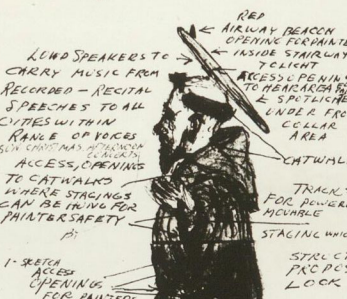 RED
AIRWAY BEACON
OPENING FOR PAINTE
INSIDE STAIRWAY
TO LIGHT
ACCESS OPENIN
TO HEAR AREA
SPOTLIGH
UNDER FRO
COLLAR
AREA
CATWAL
TRACK
FOR POWER
MOVABLE
STAGING WHIC
STRUC
PROPOS
LOCK
LOUD SPEAKERS TO
CARRY MUSIC FROM
RECORDED - RECITAL
SPEECHES TO ALL
CITIES WITHIN
RANGE OF VOICES
CHRISTMAS AFTERNOON
CONCERTS
ACCESS, OPENINGS
TO CATWALKS
WHERE STAGINGS
CAN BE HUNG FOR
PAINTER SAFETY
1- SKETCH
ACCESS
OPENINGS
FOR PAINTERS